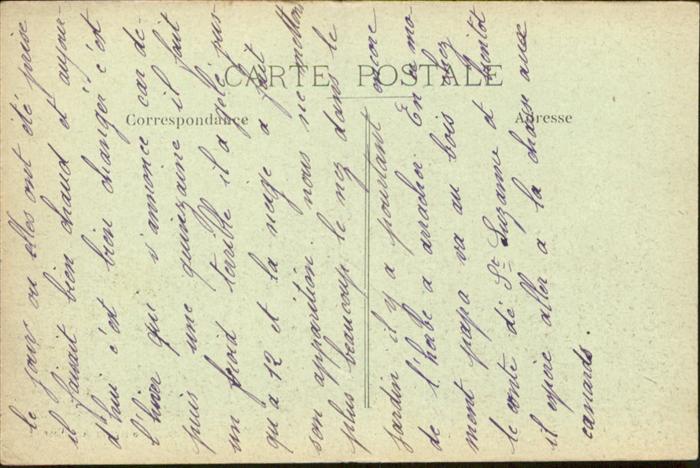 CARTE POSTALE
Correspondance
Adresse
le jour ou elles ont été prise
il faisait bien chaud et aujour-
d'hui c'est bien changer c'est
l'hiver qui s'annonce car de-
puis une quinzaine il fait
un froid terrible il a gelé jus-
qu'a 12 et la neige a fait
son apparition. nous ne mettons
plus beaucoup le nez dans le
jardin il y a pourtant encore
de l'herbe a arracher En ce mo
ment papa va au bois chez
le comte de Ste Suzanne et bientôt
il espère aller a la chasse aux
canards.